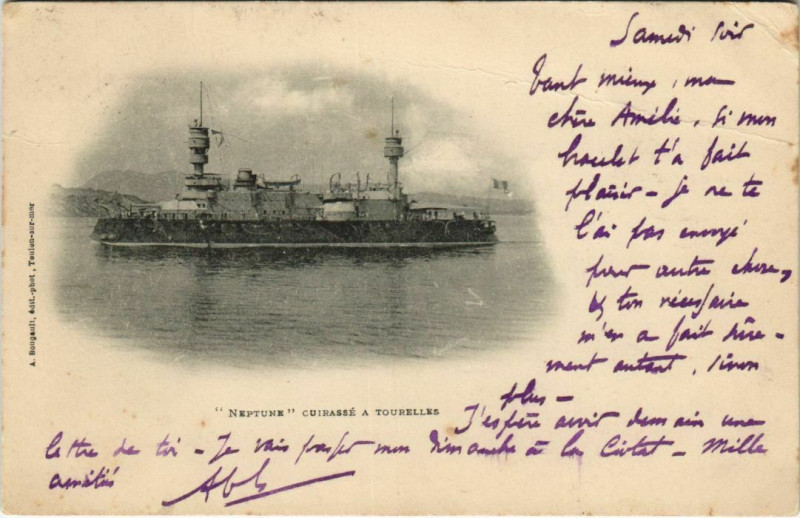 Samedi soir
Tant mieux, ma
chère Amélie, si mon
bracelet t'a fait
plaisir - Je ne te
l'ai pas envoyé
pour autre chose,
ton nécessaire
m'en a fait sûre-
ment autant, sinon
plus -
J'espère avoir demain une
lettre de toi - Je vais passer mon Dimanche à la Ciotat - Mille
amitiés
"NEPTUNE" CUIRASSÉ A TOURELLES
A. Bougault, édit.-phot., Toulon-sur-mer